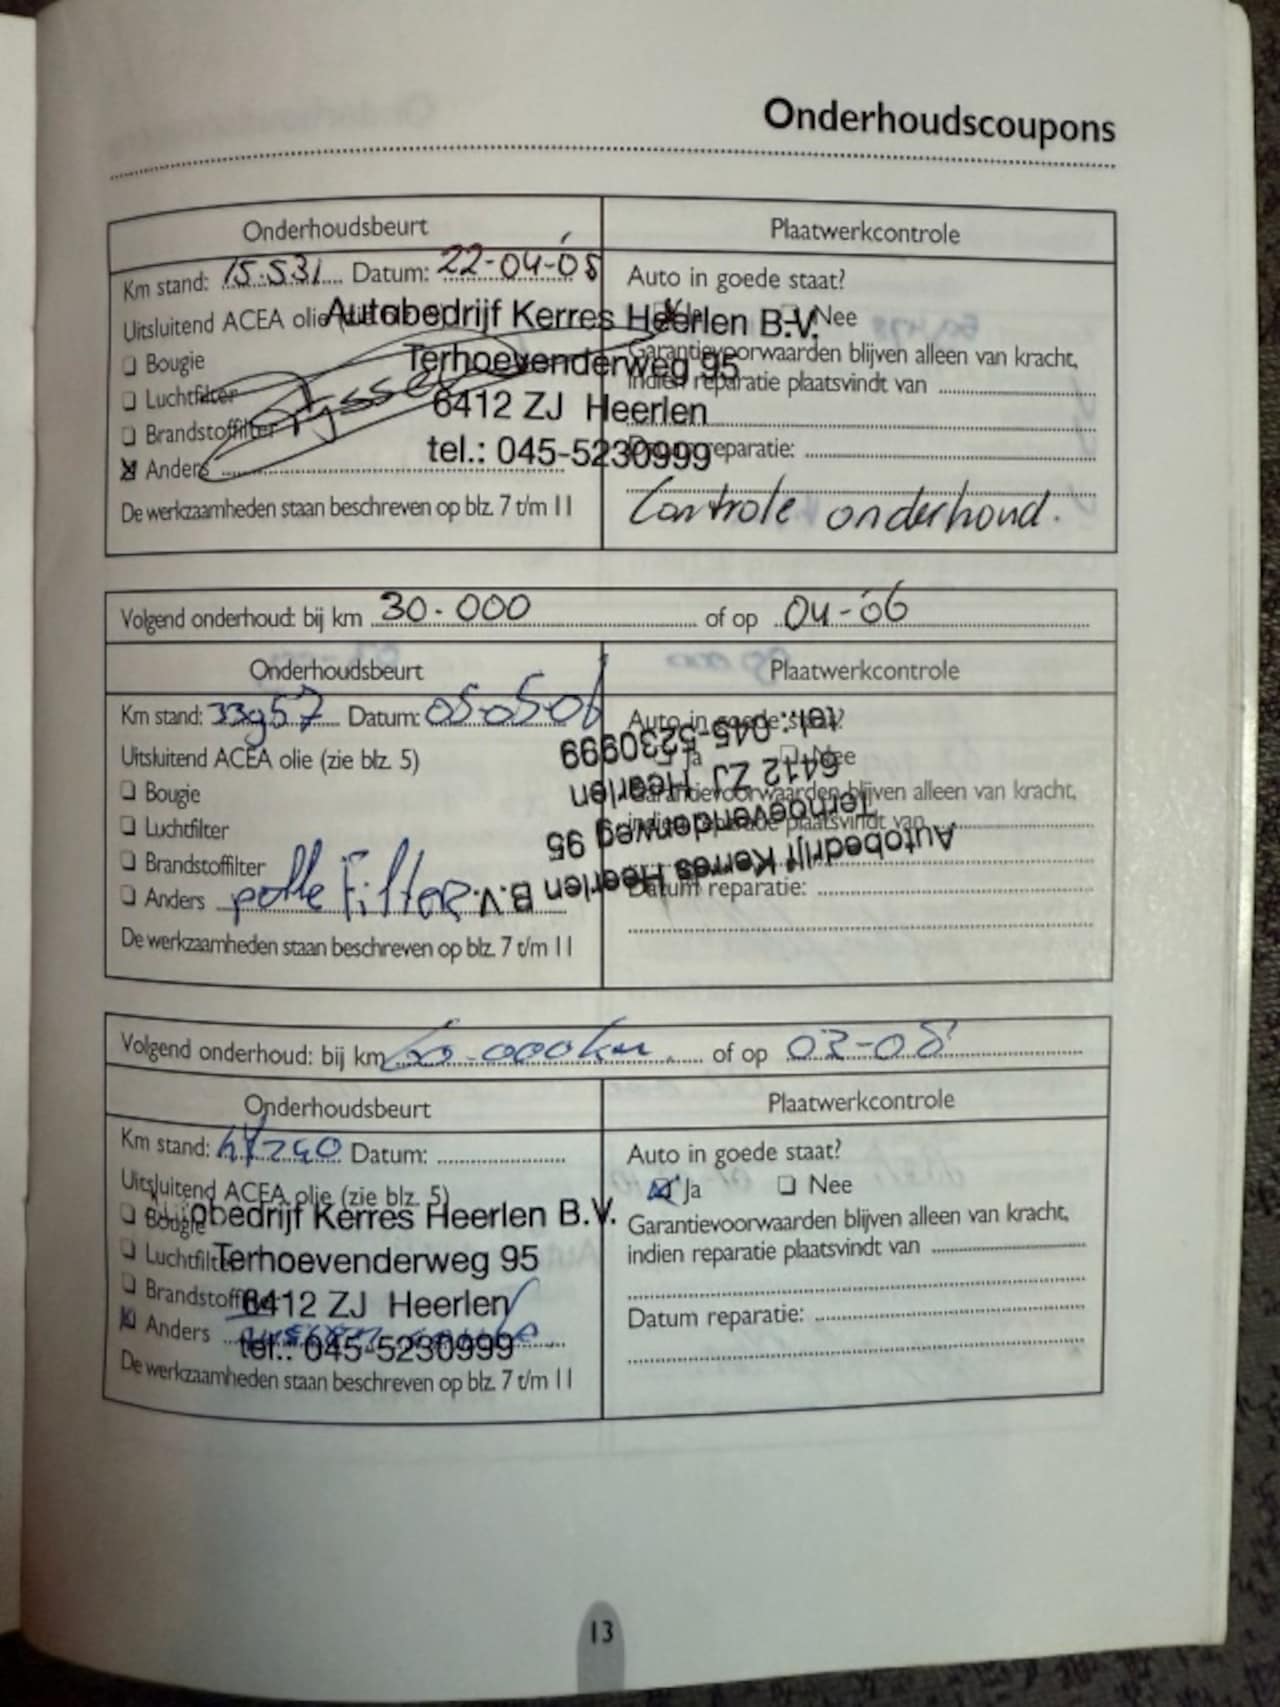 Onderhoudscoupons
Onderhoudsbeurt
Plaatwerkcontrole
Km stand: 15.531 Datum: 22-04-05
Auto in goede staat?
Uitsluitend ACEA olie
Nee
Autobedrijf Kerres Heerlen B.V.
Terhoevenderweg 95
6412 ZJ Heerlen
tel.: 045-5230999
Bougie
Luchtfilter
Brandstoffilter
Anders
Garantievoorwaarden blijven alleen van kracht,
indien reparatie plaatsvindt van
reparatie:
De werkzaamheden staan beschreven op blz. 7 t/m 11
Controle onderhoud.
Volgend onderhoud: bij km 30.000 of op 04-06
Onderhoudsbeurt
Plaatwerkcontrole
Km stand: 33957 Datum: 05-05-06
Auto in goede staat?
Uitsluitend ACEA olie (zie blz. 5)
Ja Nee
Bougie
Luchtfilter
Brandstoffilter
Anders
Garantievoorwaarden blijven alleen van kracht,
indien reparatie plaatsvindt van
Datum reparatie:
De werkzaamheden staan beschreven op blz. 7 t/m 11
Autobedrijf Kerres Heerlen B.V.
Terhoevenderweg 95
6412 ZJ Heerlen
tel.: 045-5230999
Volgend onderhoud: bij km 60.000 km of op 03-08
Onderhoudsbeurt
Plaatwerkcontrole
Km stand: Datum:
Auto in goede staat?
Uitsluitend ACEA olie (zie blz. 5)
Ja Nee
Bougie
Luchtfilter
Brandstoffilter
Anders
obedrijf Kerres Heerlen B.V.
Terhoevenderweg 95
6412 ZJ Heerlen
tel.: 045-5230999
Garantievoorwaarden blijven alleen van kracht,
indien reparatie plaatsvindt van
Datum reparatie:
De werkzaamheden staan beschreven op blz. 7 t/m 11
13